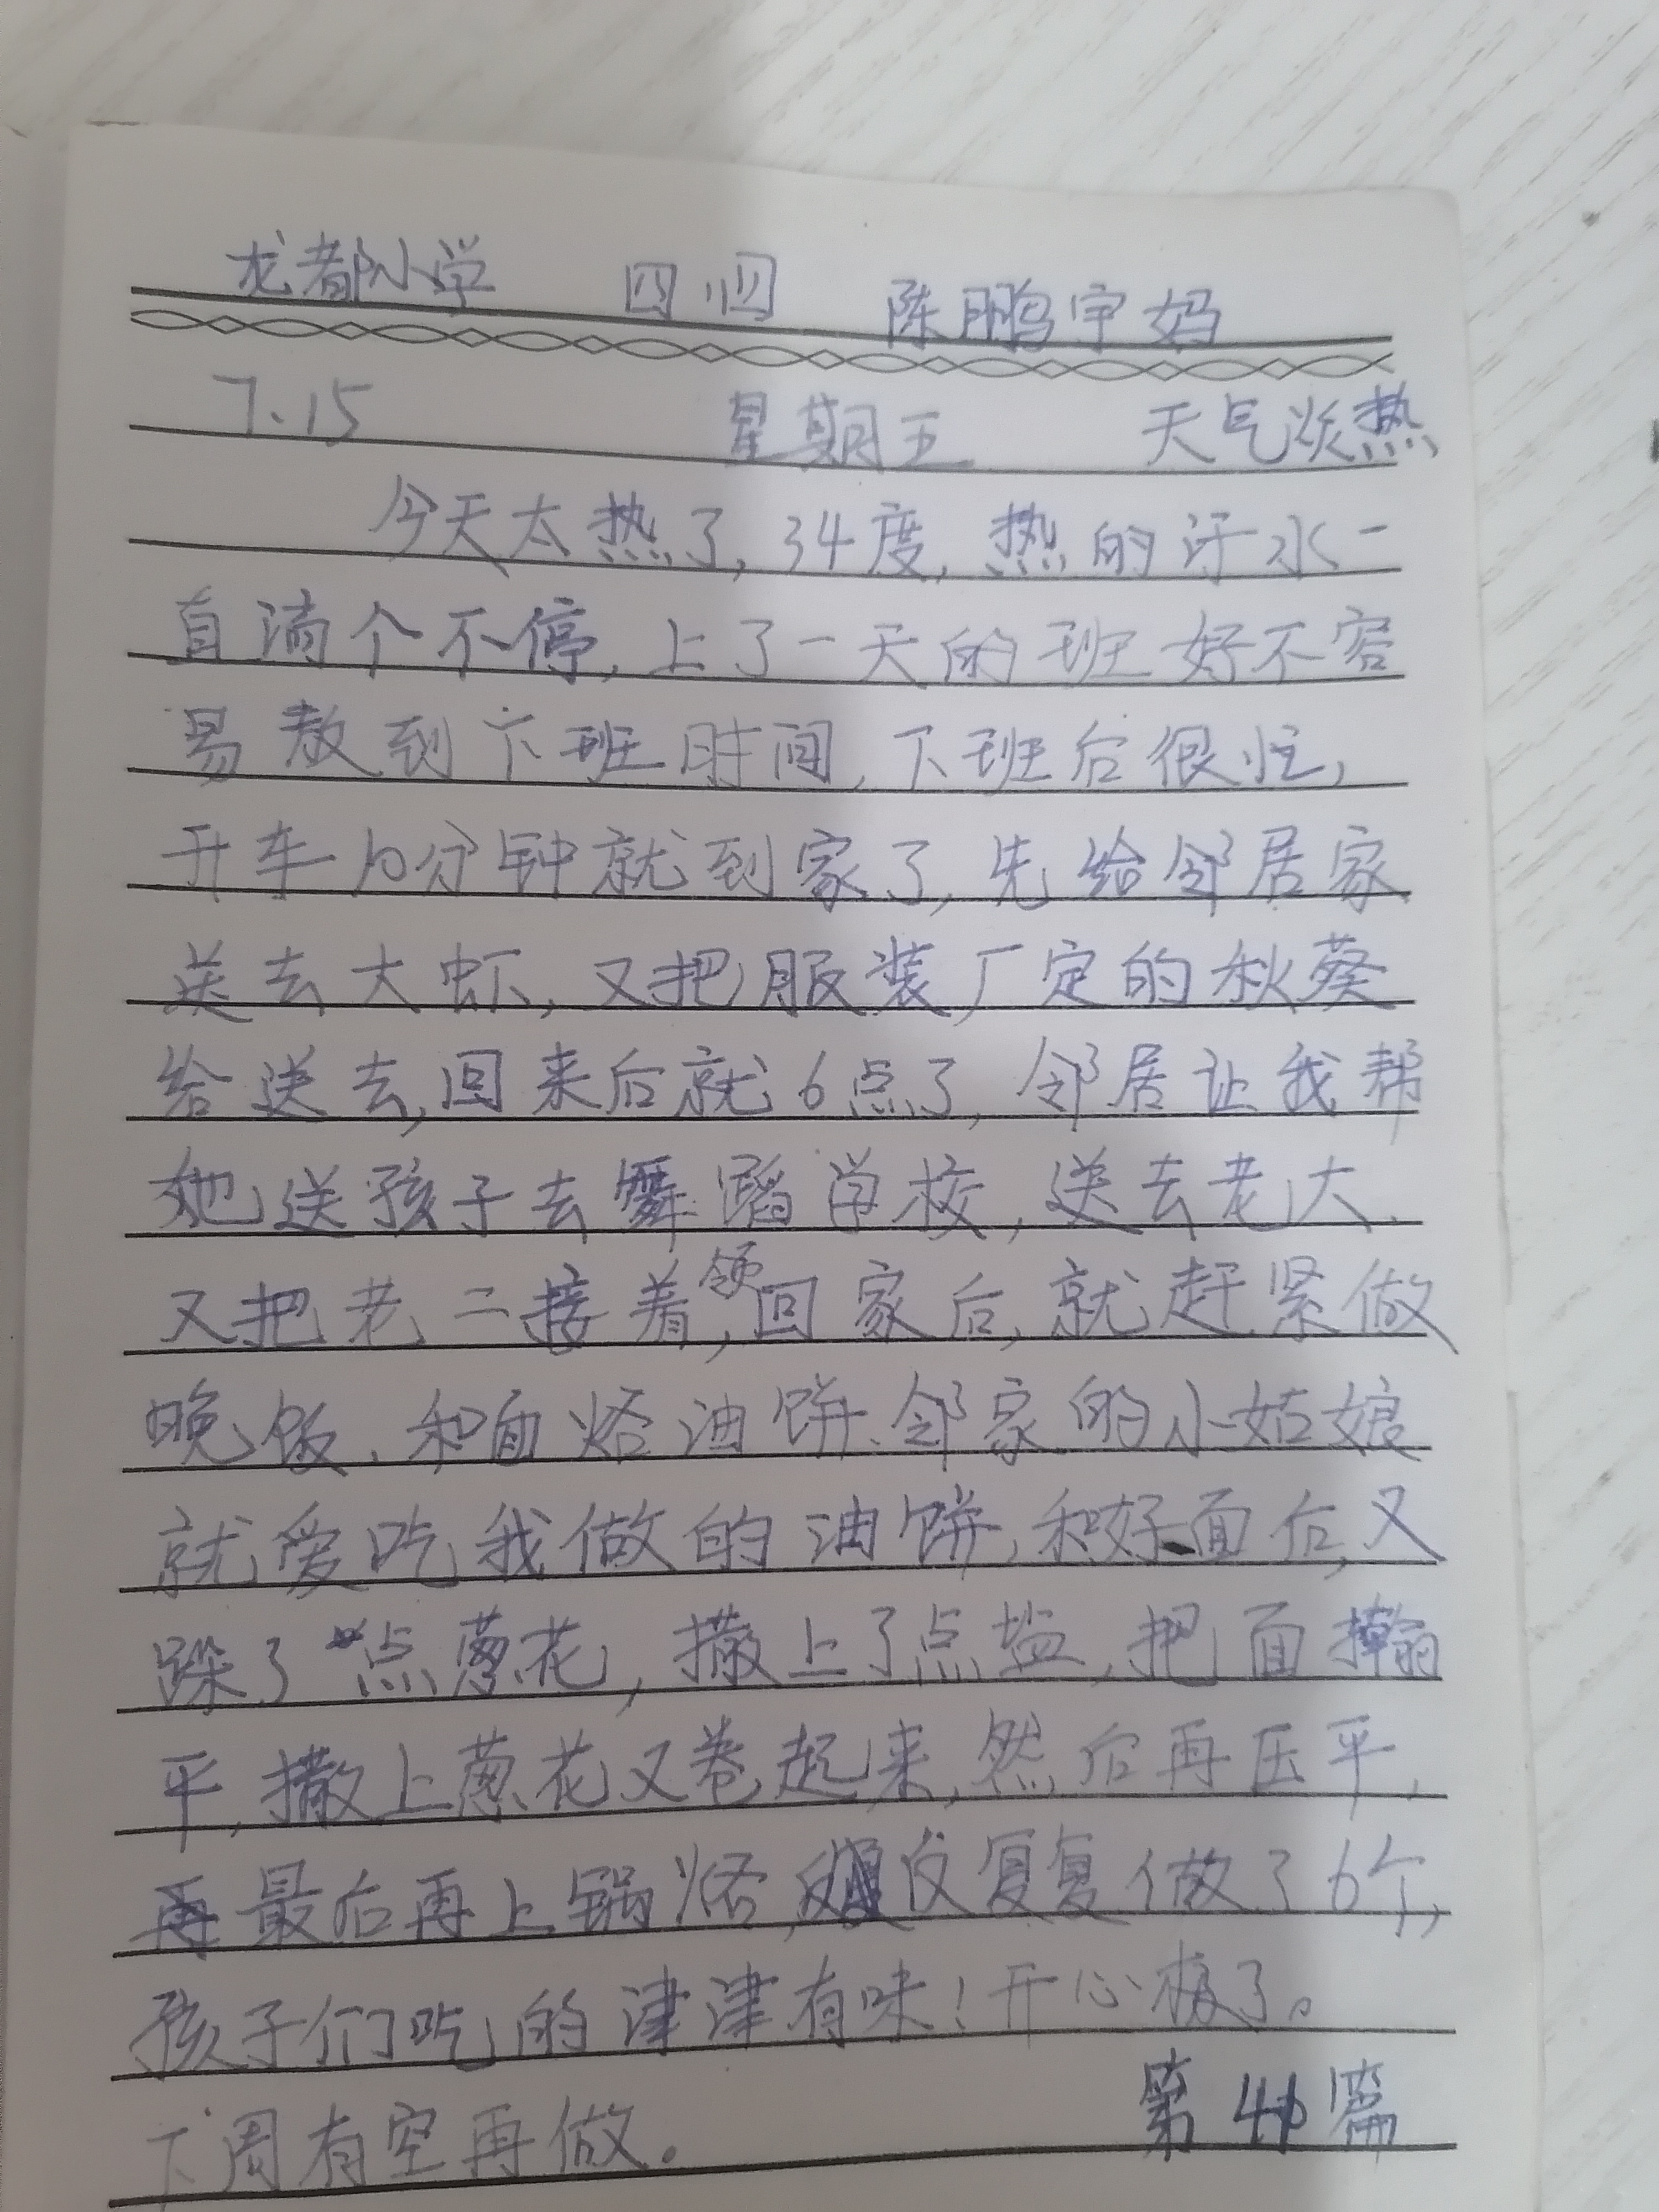 龙都小学 四四 陈鹏宇妈
7.15 星期五 天气炎热
今天太热了,34度,热的汗水一
直淌个不停,上了一天的班好不容
易熬到下班时间,下班后很忙,
开车10分钟就到家了,先给邻居家
送去大虾,又把服装厂定的秋葵
给送去,回来后就6点了,邻居让我帮
她送孩子去舞蹈学校,送去老大、
又把老二接着,领回家后,就赶紧做
晚饭、和面烙油饼、邻家的小姑娘
就爱吃我做的油饼,和好面后,又
跺了点葱花,撒上了点盐,把面擀
平,撒上葱花又卷起来,然后再压平,
再最后再上锅烙,反反复复做了6个,
孩子们吃的津津有味!开心极了。
下周有空再做。 第 篇